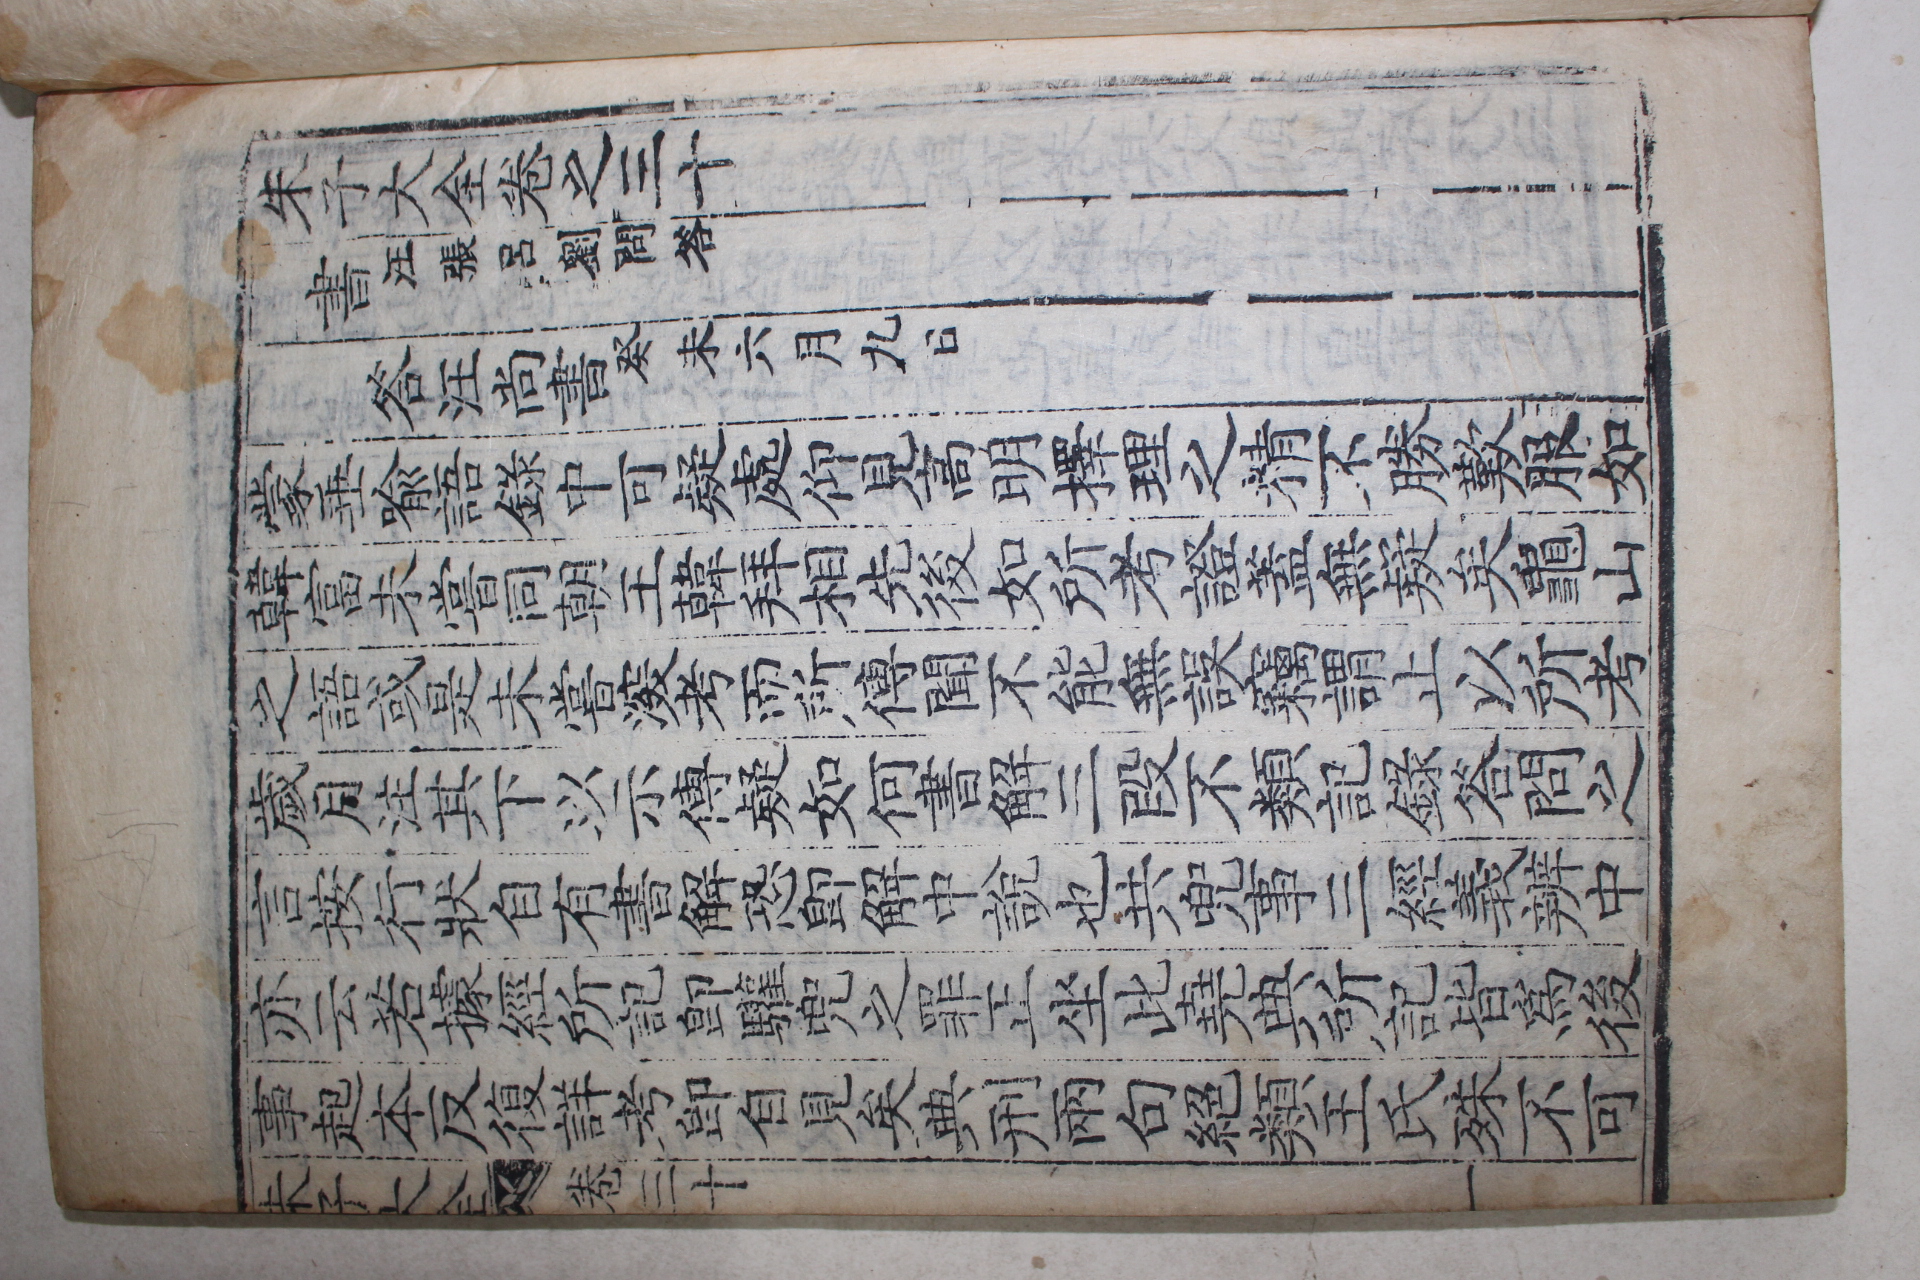 朱子大全卷之三十
書汪張呂劉問答
答汪尚書癸未六月九日
蒙垂喩語錄中可疑處仰見高明擇理之精不勝歎服如
韓富未嘗同朝王韓拜相先後如所考證蓋無疑矣龜山
之語或是未嘗深考而所傳聞不能無誤竊謂止以所考
歲月注其下以示傳疑如何書解三段不類記錄答問之
言按行狀自有書解恐卽解中說也共兜事三經義辨中
亦云若據經所記卽驩兜之罪正坐此堯典所記皆爲後
事起本反復詳考卽自見矣典刑兩句絕類王氏殊不可
朱子大全 卷三十 一